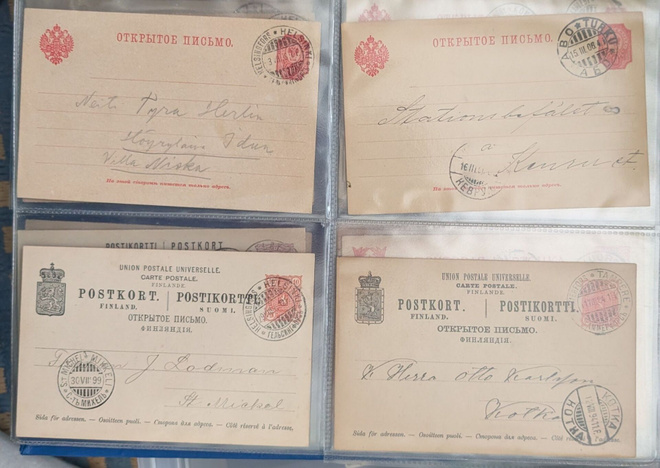 ОТКРЫТОЕ ПИСЬМО.
HELSINGFORS HELSINKI
Neiti Tyra Herlin
Villa Miska
На этой сторонѣ пишется только адресъ.
ОТКРЫТОЕ ПИСЬМО.
ÅBO TURKU
АБО
Stationsbefälet
à
КЕВР
На этой сторонѣ пишется только адресъ.
POSTIKORTTI POSTKORT
UNION POSTALE UNIVERSELLE.
CARTE POSTALE.
FINLANDE
POSTKORT. POSTIKORTTI.
FINLAND. SUOMI.
ОТКРЫТОЕ ПИСЬМО.
ФИНЛЯНДІЯ.
HELSINGFORS HELSINKI
ГЕЛЬСИНГФОРСЪ
J. Lodman
St. Mickel
S:T MICHEL MIKKELI
30 VII 99
С:ТЪ МИХЕЛЬ
Sida för adressen. — Osoitteen puoli. — Сторона для адреса. — Côté réservé à l'adresse.
UNION POSTALE UNIVERSELLE.
CARTE POSTALE.
FINLANDE.
POSTKORT. POSTIKORTTI.
FINLAND. SUOMI.
ОТКРЫТОЕ ПИСЬМО.
ФИНЛЯНДІЯ.
Herra Otto Karlsson
Kotka
KOTKA
КОТКА
Sida för adressen. — Osoitteen puoli. — Сторона для адреса. — Côté réservé à l'adresse.